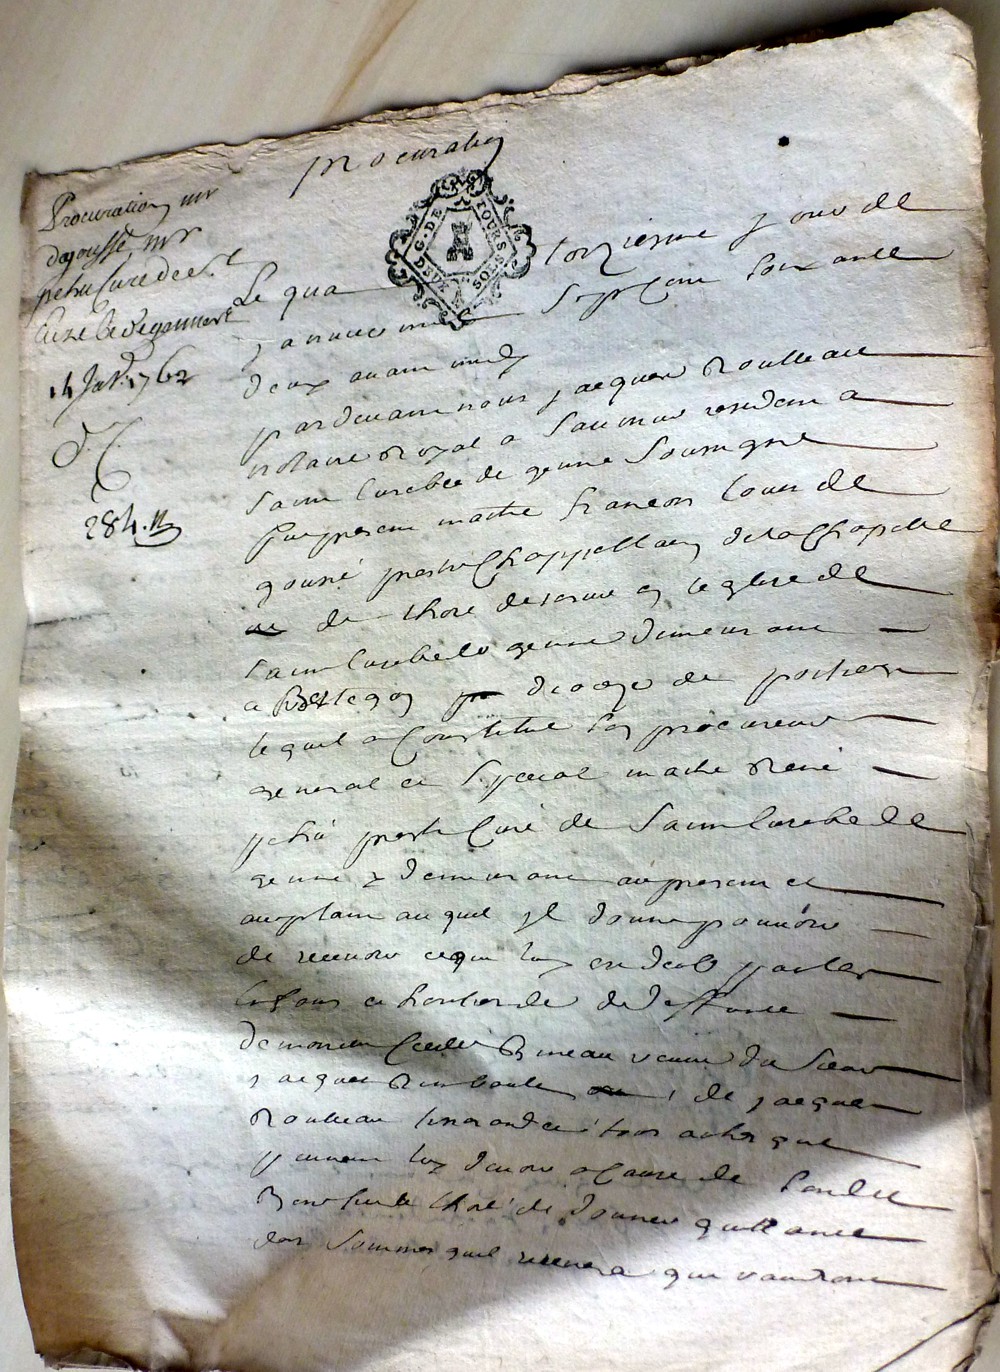 procuration
Procuration mr
degoussé mr
petru Curé de St
Eusebe de gennes
14 Janr. 1762
284. n
G. DE TOURS
DEUX SOLS
Le quatorzieme jour de
janvier mil sept Cent soixante
deux avant midy
pardevant nous jacques Rouleau
notaire Royal a Saumur resident a
Saint Eusebe de genne Soussigne
fut present maitre francois Louis de
goussé prestre Chappellain de la Chapelle
de thoré deservie en leglise de
Saint Eusebe de genne demeurant
a dioceze de poitiers
lequel a Constitué son procureur
general et special maitre René
petru prestre Curé de Saint Eusebe de
genne y demeurant au present et
auquel jl donne pouvoir
de recevoir ce qui luy est deub par les
enfans et heritiers de deffunte
veuve du Sieur
jacques de jacques
Rouleau tisserand et tous autres qui
peuvent luy devoir a Cause de Sondit
thoré de donner quittance
des Sommes quil recevera qui vaudront